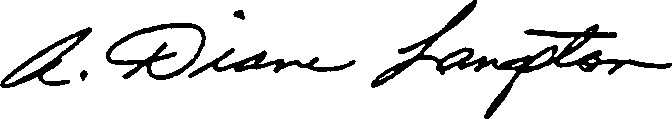 A. Diane Langston